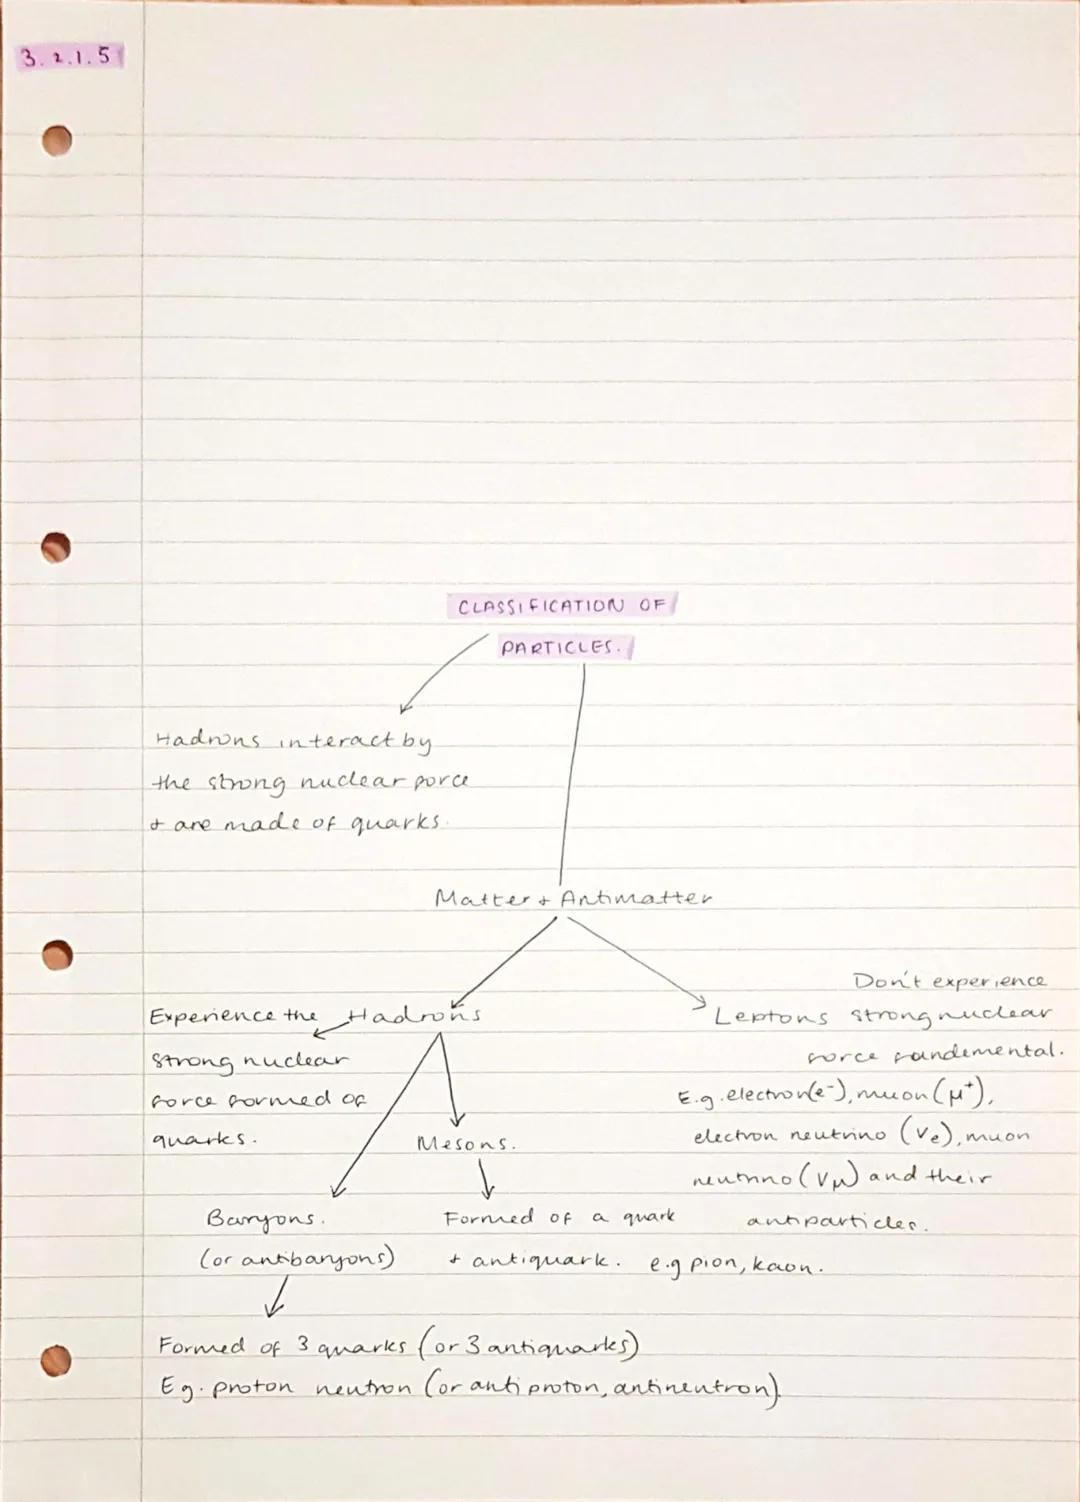 3.2.1.5
CLASSIFICATION OF
PARTICLES.
Hadrons interact by
the strong nuclear force
+ are made of quarks.
Matter + Antimatter
Experience the Hadrons
strong nuclear
force formed of
quarks.
Don't experience
Leptons strong nuclear
force fundemental.
E.g. electron (e⁻), muon (μ⁺),
electron neutrino (Ve), muon
neutrino (Vμ) and their
antiparticles.
Mesons.
Formed of a quark
+ antiquark. e.g pion, kaon.
Baryons.
(or antibaryons)
Formed of 3 quarks (or 3 antiquarks)
Eg. proton neutron (or antiproton, antineutron).